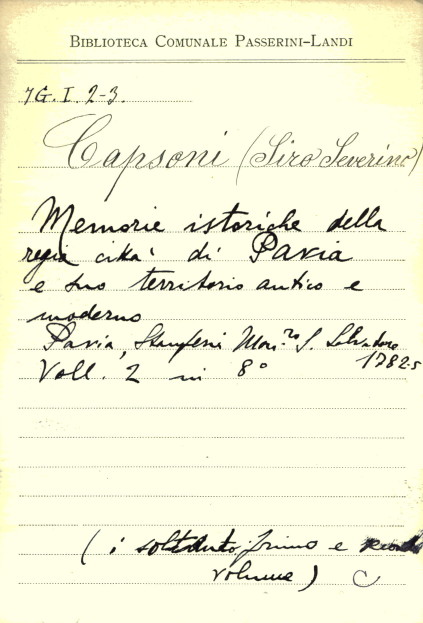 BIBLIOTECA COMUNALE PASSERINI-LANDI
7G. I. 2-3.
Capsoni (Siro Severino)
Memorie istoriche della
regia città di Pavia
e suo territorio antico e
moderno
Pavia, Stamperia Mon.ro S. Salvatore
1782-5
Voll. 2 in 8°
(i soltanto primo e secondo
volume) C